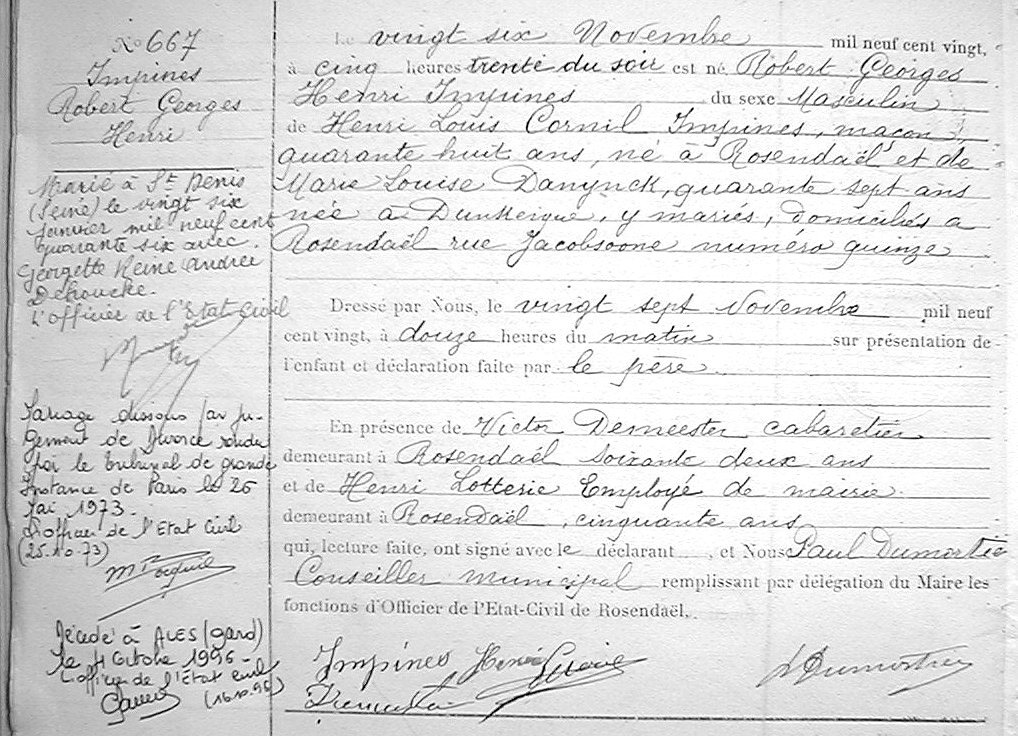 No 667
Impines
Robert Georges
Henri
Marié à St Denis
(Seine) le vingt six
janvier mil neuf cent
quarante six avec
Georgette Reine Andrée
Dehoucke.
L'officier de l'Etat Civil
Mariage dissous par ju-
gement de divorce rendu
par le Tribunal de grande
Instance de Paris le 26
Mai 1973.
L'officier de l'Etat Civil
(25.10.73)
Décédé à ALES (gard)
le 4 Octobre 1996 -
L'officier de l'Etat Civil
(16.10.96)
Le vingt six Novembre mil neuf cent vingt,
à cinq heures trente du soir est né Robert Georges
Henri Impines du sexe Masculin
de Henri Louis Cornil Impines, maçon,
quarante huit ans, né à Rosendaël et de
Marie Louise Danynck, quarante sept ans
née à Dunkerque, y mariés, domiciliés à
Rosendaël rue Jacobsoone numéro quinze
Dressé par Nous, le vingt sept Novembre mil neuf
cent vingt, à douze heures du matin sur présentation de
l'enfant et déclaration faite par le père
En présence de Victor Demeester cabaretier
demeurant à Rosendaël soixante deux ans
et de Henri Lotterie Employé de mairie
demeurant à Rosendaël, cinquante ans
qui, lecture faite, ont signé avec le déclarant, et Nous Paul Dumortier
Conseiller municipal remplissant par délégation du Maire les
fonctions d'Officier de l'Etat-Civil de Rosendaël.
Impines Henri
P Dumortier